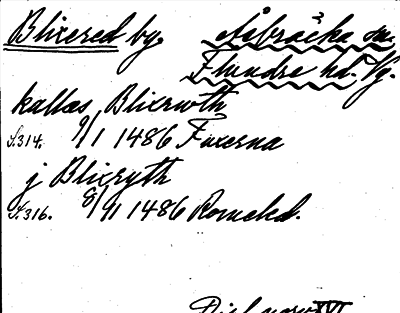 Blixered by. Åsbräcka sn.
Flundre hd. Vg.
kallas Blixrwth
S.314. 9/1 1486 Fuxerna
j Blixryth
S.316. 8/9 1486 Romeled.